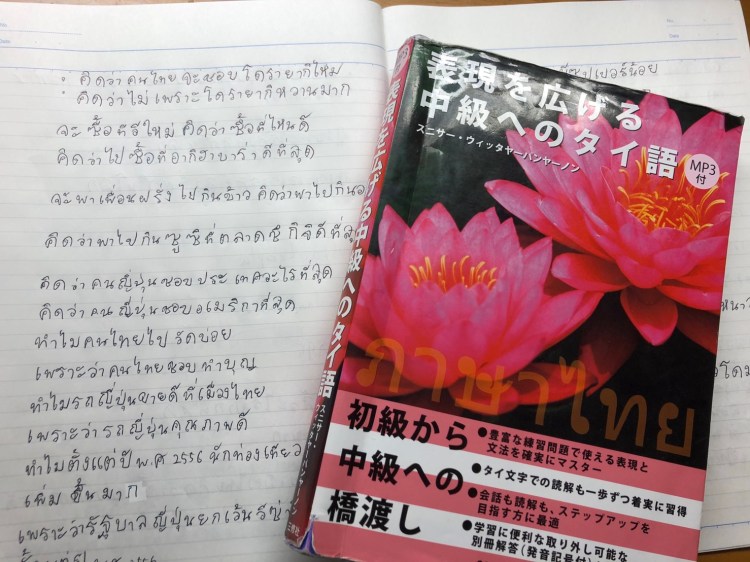 คิดว่าคนไทยจะชอบโดรายากิไหม
คิดว่าไม่ เพราะโดรายากิหวานมาก
จะซื้อทีวีใหม่ คิดว่าซื้อที่ไหนดี
คิดว่าไปซื้อที่อากิฮาบาร่าดีที่สุด
จะพาเพื่อนฝรั่งไปกินข้าว คิดว่าพาไปกิน
คิดว่าพาไปกินซูชิที่ตลาดซึกิจิดีที่สุด
คิดว่าคนญี่ปุ่นชอบประเทศอะไรที่สุด
คิดว่าคนญี่ปุ่นชอบอเมริกาที่สุด
ทำไมคนไทยไปวัดบ่อย
เพราะว่าคนไทยชอบทำบุญ
ทำไมรถญี่ปุ่นขายดีที่เมืองไทย
เพราะว่ารถญี่ปุ่นคุณภาพดี
ทำไมตั้งแต่ปี พ.ศ 2556 นักท่องเที่ยว
เพิ่มขึ้นมาก
เพราะว่ารัฐบาลญี่ปุ่นยกเว้นวีซ่า
表現を広げる
中級へのタイ語
スニサー・ウィッタヤーパンヤーノン
MP3
付
ภาษาไทย
初級から
中級への
橋渡し
●豊富な練習問題で使える表現と
文法を確実にマスター
●タイ文字での読解も一歩ずつ着実に習得
●会話も読解も、ステップアップを
目指す方に最適
●学習に便利な取り外し可能な
別冊解答(発音記号付
表現を広げる中級へのタイ語
スニサー・ウィッタヤーパンヤーノン